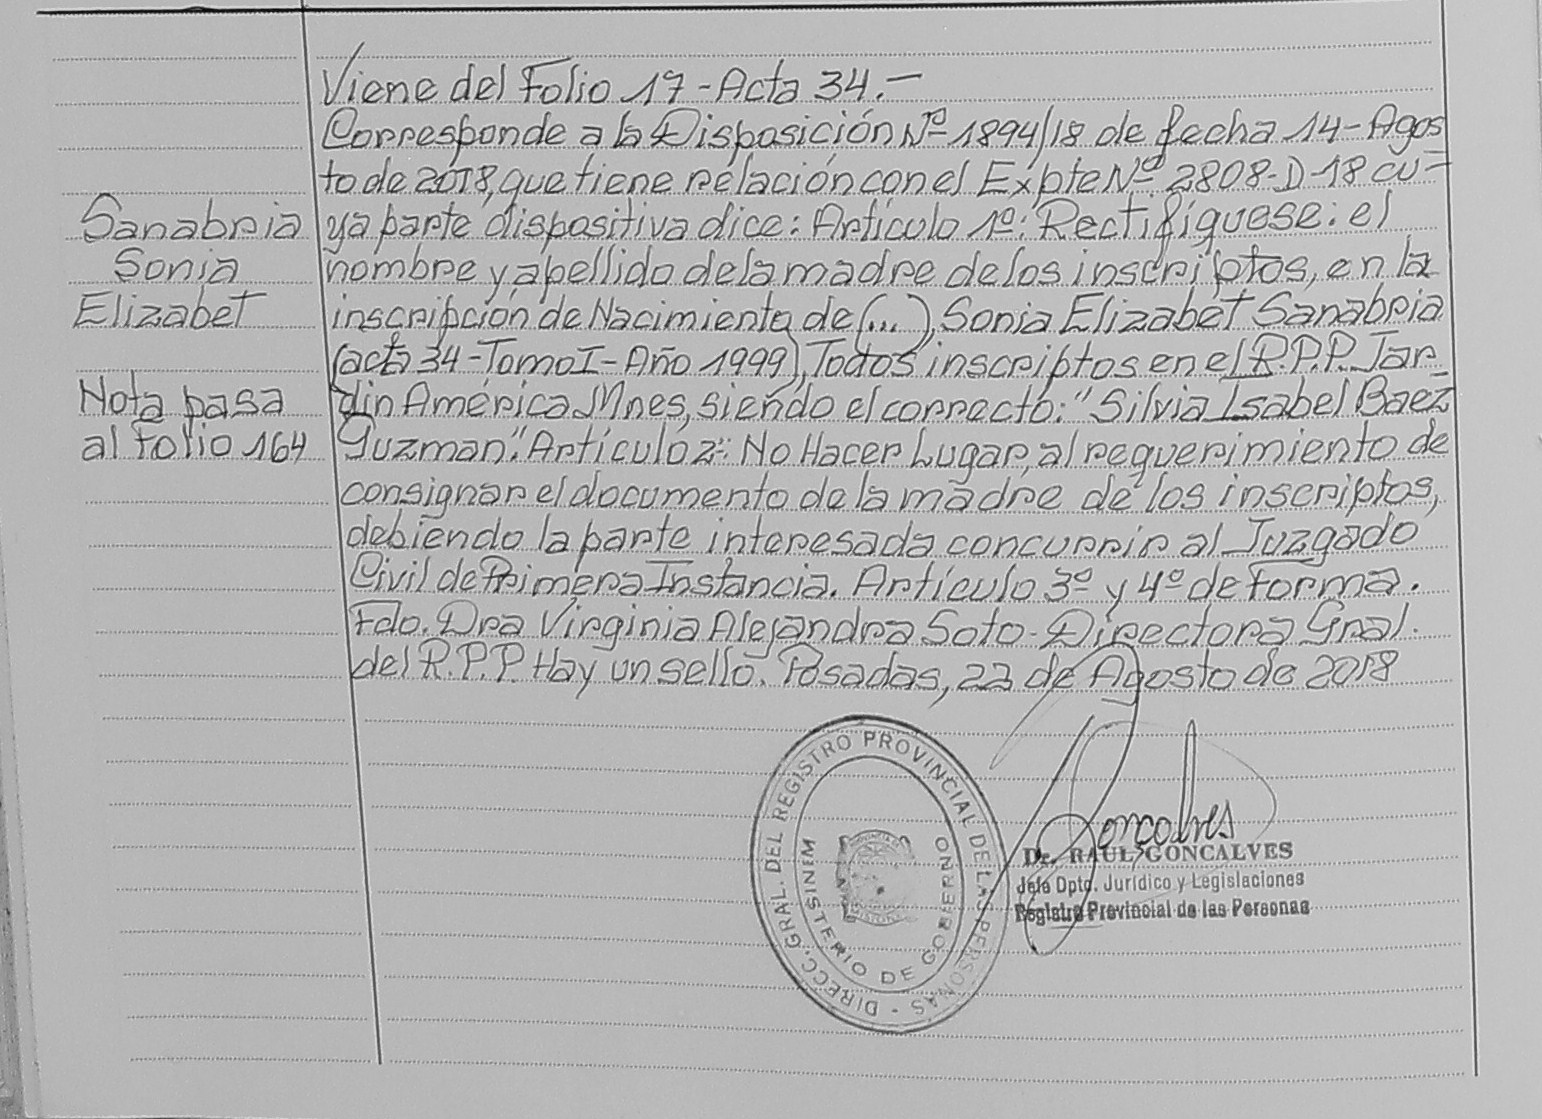 Viene del Folio 17 - Acta 34.-
Corresponde a la Disposición Nº 1894/18 de fecha 14-Agos
to de 2018, que tiene relación con el Expte Nº 2808-D-18 cu-
ya parte dispositiva dice: Artículo 1º: Rectifíquese: el
nombre y apellido de la madre de los inscriptos, en la
inscripción de Nacimiento de (...), Sonia Elizabet Sanabria
(acta 34-Tomo I-Año 1999), Todos inscriptos en el R.P.P. Jar
din América Mnes, siendo el correcto: "Silvia Isabel Baez
Guzman". Artículo 2º: No Hacer Lugar, al requerimiento de
consignar el documento de la madre de los inscriptos,
debiendo la parte interesada concurrir al Juzgado
Civil de Primera Instancia. Artículo 3º y 4º de Forma.
Fdo. Dra Virginia Alejandra Soto - Directora Gral.
del R.P.P. Hay un sello. Posadas, 22 de Agosto de 2018
Sanabria
Sonia
Elizabet
Nota pasa
al Folio 164
DIRECC. GRAL. DEL REGISTRO PROVINCIAL DE LAS PERSONAS -
MINISTERIO DE GOBIERNO
Goncalves
Dr. RAUL GONCALVES
Jefe Dpto. Jurídico y Legislaciones
Registro Provincial de las Personas